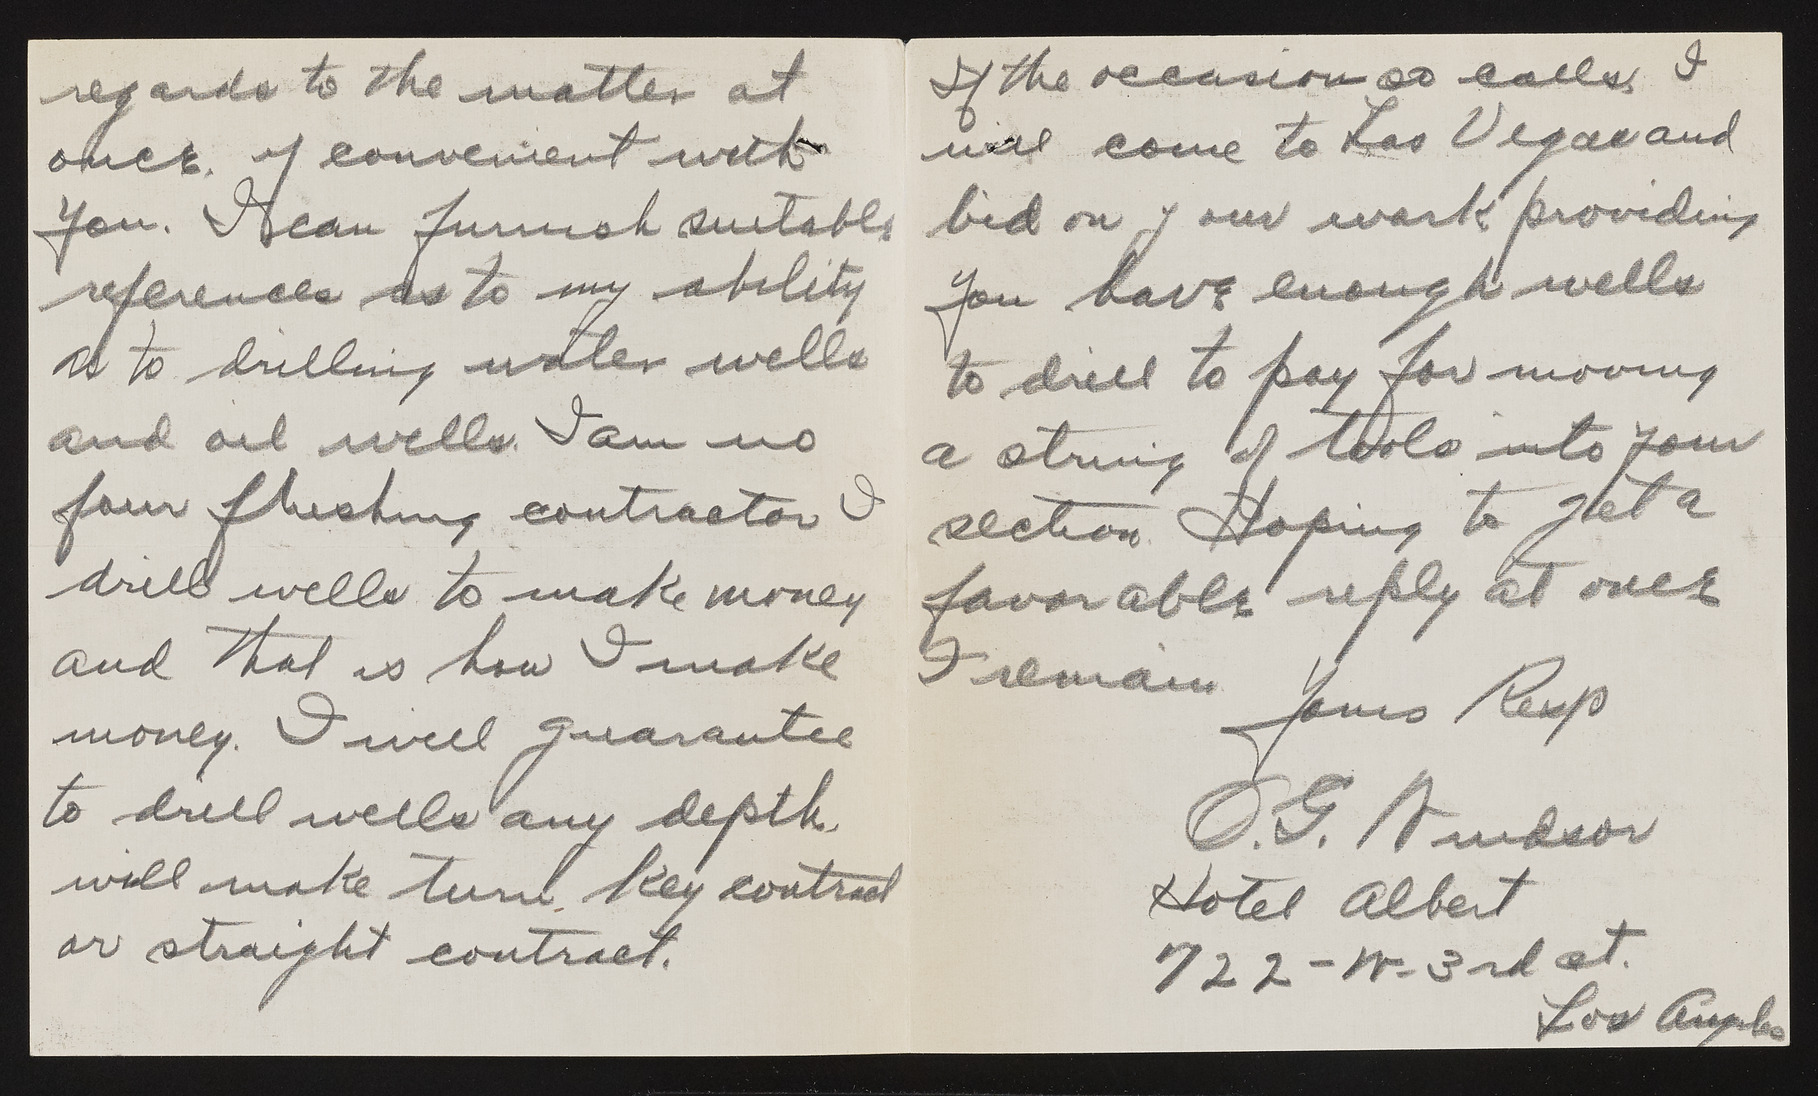 regards to the matter at
once. if convenient with
you. I can furnish suitable
references as to my ability
as to drilling water wells
and oil wells. I am no
four flushing contractor I
drill wells to make money
and that is how I make
money. I will guarantee
to drill wells any depth.
will make turn key contract
or straight contract.
If the occasion so calls, I
will come to Las Vegas and
bid on your work providing
you have enough wells
to drill to pay for moving
a string of tools into your
section. Hoping to get a
favorable reply at once
I remain
Yours Resp
O.G. Windsor
Hotel Albert
722-W-3rd st.
Los Angeles